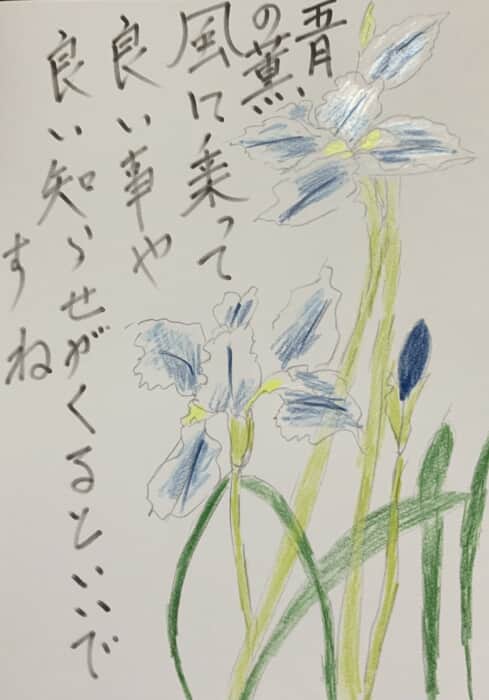 五月
の薫
風に乗って
良い事や
良い知らせがくるといいで
すね